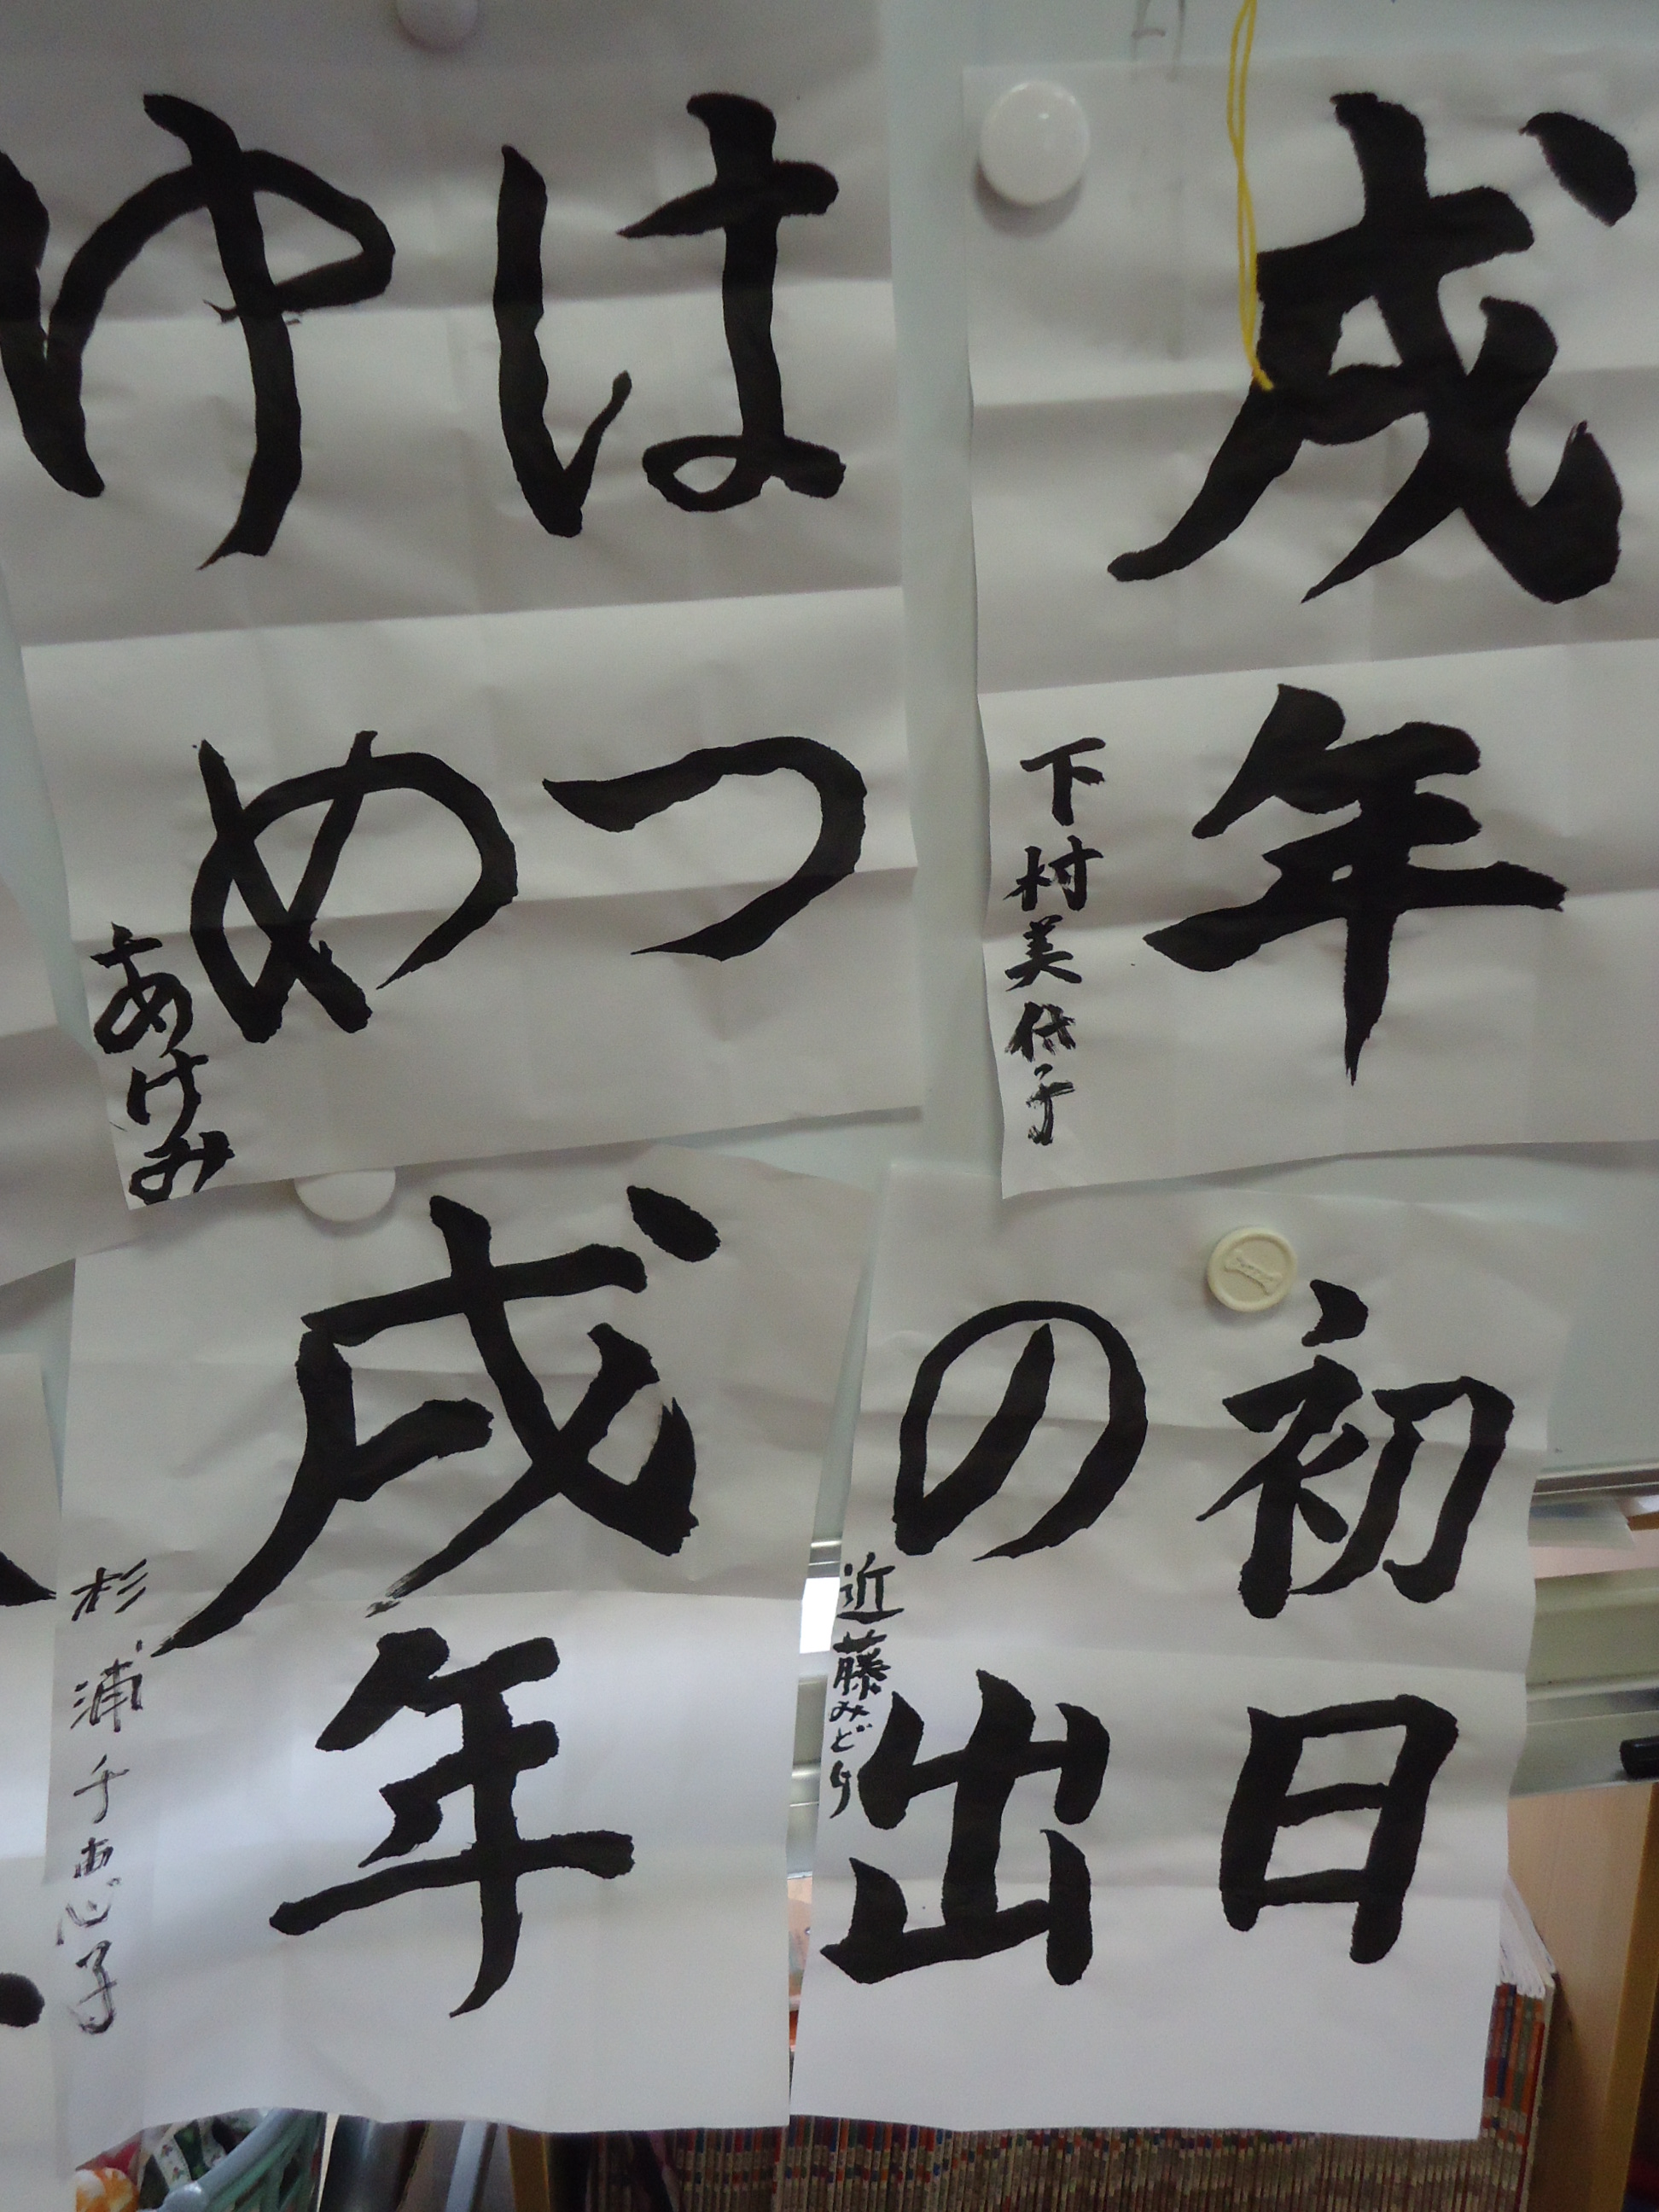 戌年
下村美代子
はつ
ゆめ
あけみ
初日
の出
近藤みどり
戌年
杉浦千恵子